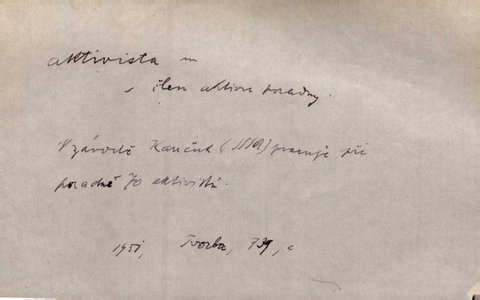 aktivista m
s člen aktivu poradny.
V závodě Kaučuk (SSSR) pracuje při
poradně 70 aktivistů.
1951, Tvorba, 739, c